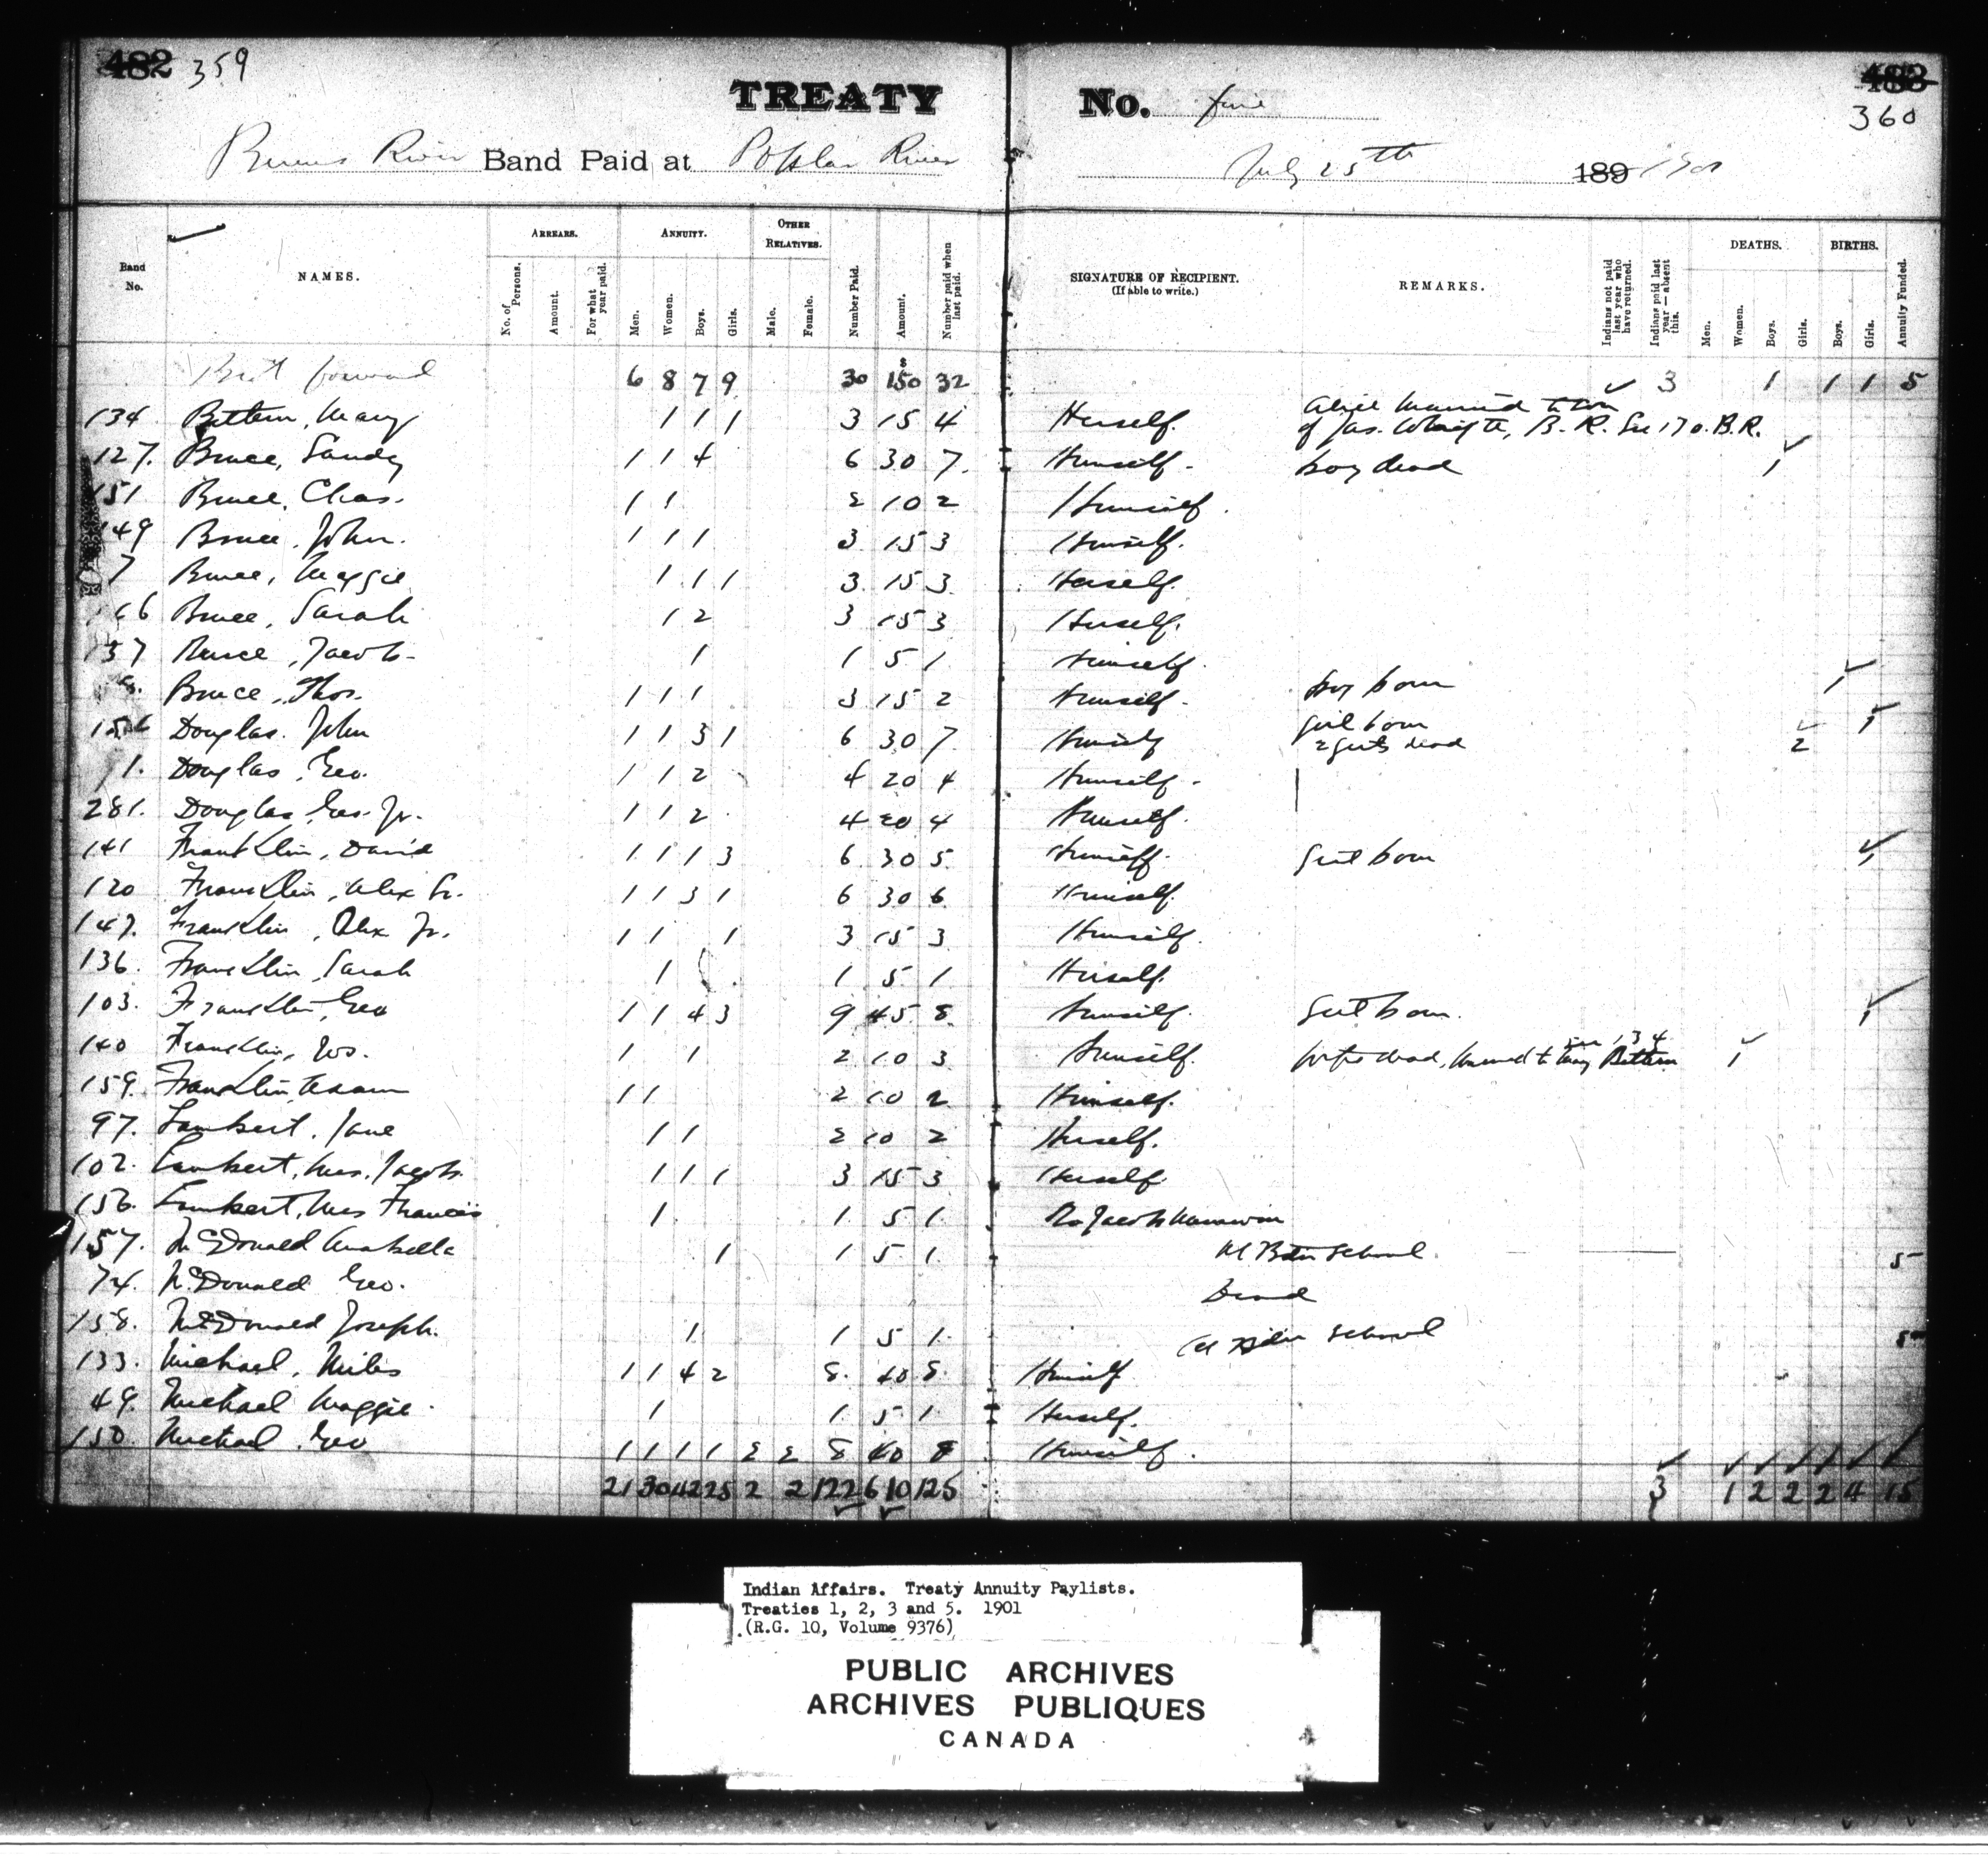 482 359
TREATY No. five
483
360
Berens River Band Paid at Poplar River July 25th 189 1901
Band No.
NAMES.
ARREARS.
No. of Persons.
Amount.
For what year paid.
ANNUITY.
Men.
Women.
Boys.
Girls.
OTHER RELATIVES.
Male.
Female.
Number Paid.
Amount.
Number paid when last paid.
SIGNATURE OF RECIPIENT.
(If able to write.)
REMARKS.
Indians not paid last year who have returned.
Indians paid last year—absent this.
DEATHS.
Men.
Women.
Boys.
Girls.
BIRTHS.
Boys.
Girls.
Annuity Funded.
Brot forward 6 8 7 9 30 $150 32 ✓ 3 1 1 1 5
134 Bittern, Mary 1 1 1 3 15 4 Herself. Alice married to son
of Jas. B. R. See 170. B.R.
127. Bruce, Sandy 1 1 4 6 30 7. Himself. boy dead 1
151 Bruce, Chas. 1 1 2 10 2 Himself.
149 Bruce, John. 1 1 1 3 15 3 Himself.
7 Bruce, Maggie 1 1 1 3 15 3 Herself.
66 Bruce, Sarah 1 2 3 15 3 Herself.
37 Bruce, Jacob 1 1 5 1 Himself.
Bruce, Thos. 1 1 1 3 15 2 Himself. boy born 1
Douglas. John 1 1 3 1 6 30 7 Himself girl born 1
2 girls dead 2
1. Douglas, Geo. 1 1 2 4 20 4 Himself.
281. Douglas, Geo. Jr. 1 1 2 4 20 4 Himself.
141 Franklin, David 1 1 1 3 6 30 5 Himself. Girl born 1
120 Franklin, Alex Sr. 1 1 3 1 6 30 6 Himself.
147. Franklin, Alex Jr. 1 1 1 3 15 3 Himself.
136. Franklin, Sarah 1 1 5 1 Herself.
103. Franklin, Geo 1 1 4 3 9 45 8 Himself. Girl born. 1
140 Franklin, Jos. 1 1 2 10 3 Himself. Wife dead, married to Mary Bittern see 134 1
159. Franklin, Adam 1 1 2 10 2 Himself.
97. Lambert. Jane 1 1 2 10 2 Herself.
102. Lambert, Mrs. Jacob. 1 1 1 3 15 3 Herself
156. Lambert, Mrs Francis 1 1 5 1 Jacob
157. McDonald Annabella 1 1 5 1 At School 5
74. McDonald Geo. Dead
158. McDonald Joseph. 1 1 5 1 At School 5
133. Michael, Miles 1 1 4 2 8 40 8 Himself
49. Michael Maggie 1 1 5 1 Herself.
150. Michael. Geo 1 1 1 1 2 2 8 40 8 Himself.
21 30 42 25 2 2 122 610 125 3 1 2 2 2 4 15
Indian Affairs. Treaty Annuity Paylists.
Treaties 1, 2, 3 and 5. 1901
(R.G. 10, Volume 9376)
PUBLIC ARCHIVES
ARCHIVES PUBLIQUES
CANADA